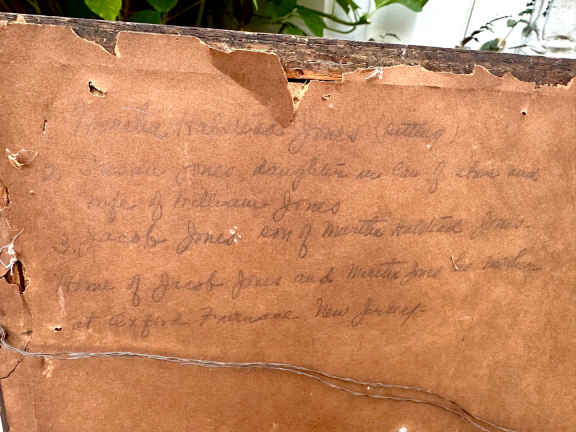 Martha Halstead Jones (sitting)
2, Susan Jones, daughter in law of above and
wife of William Jones
3, Jacob Jones, son of Martha Halstead Jones.
Home of Jacob Jones and Martha Jones his mother
at Oxford Furnace, New Jersey-